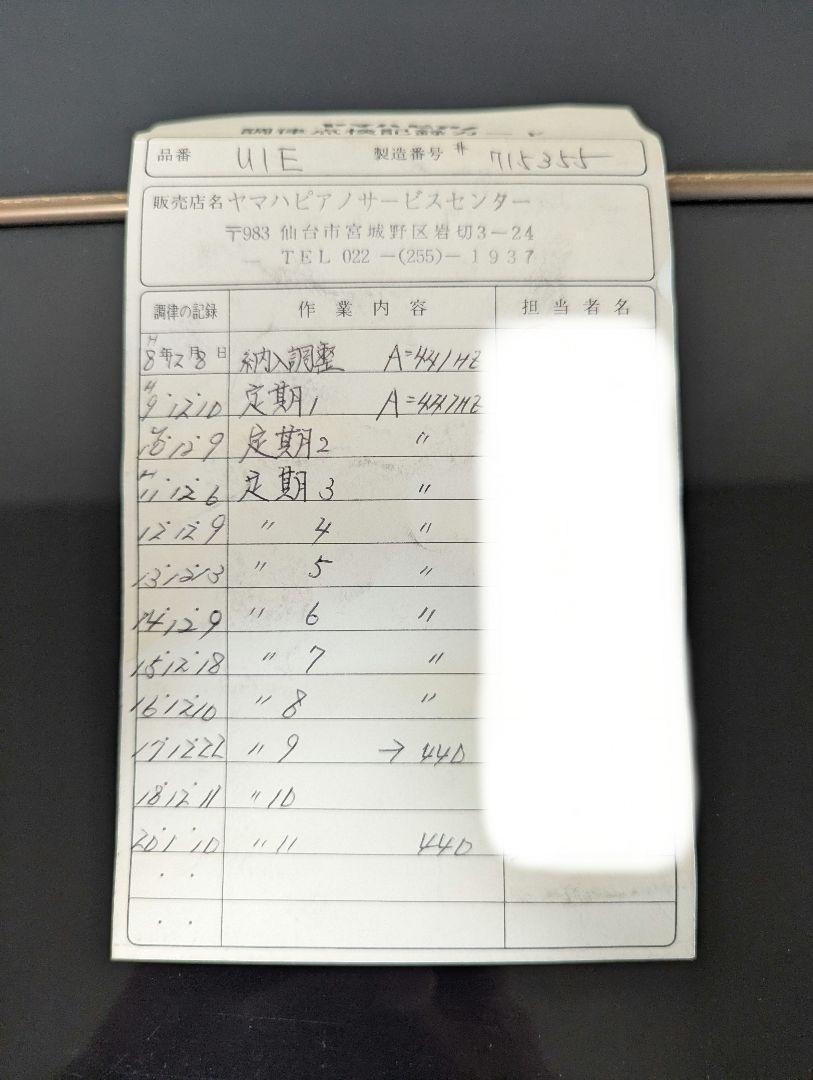 調律点検記録カード
品番 U1E 製造番号 # 715355
販売店名 ヤマハピアノサービスセンター
〒983 仙台市宮城野区岩切3-24
TEL 022-(255)-1937
調律の記録 作業内容 担当者名
H8年12月8日 納入調整 A=441HZ
H9・12・10 定期1 A=441HZ
10・12・9 定期2 〃
H11・12・6 定期3 〃
12・12・9 〃 4 〃
13・12・13 〃 5 〃
14・12・9 〃 6 〃
15・12・18 〃 7 〃
16・12・10 〃 8 〃
17・12・22 〃 9 → 440
18・12・11 〃 10
20・1・10 〃 11 440